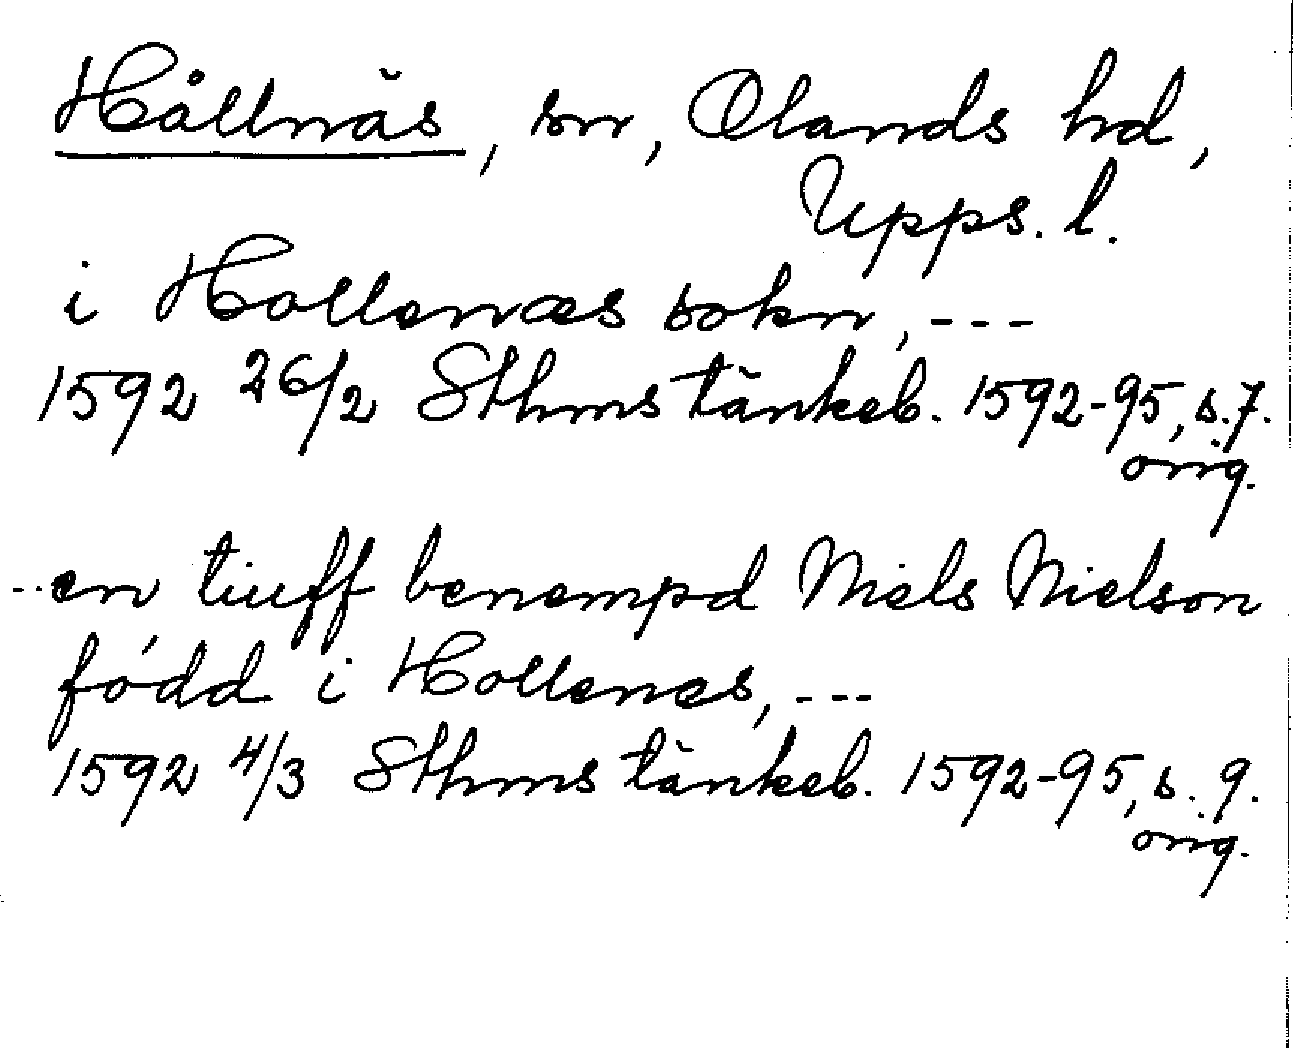 Hållnäs, sn, Olands hd,
Upps. l.
i Hollenæs sokn, ---
1592 26/2 Sthms tänkeb. 1592-95, s. 7.
orig.
--en tiuff benempd Niels Nielson
född i Hollenes, ---
1592 4/3 Sthms tänkeb. 1592-95, s. 9.
orig.